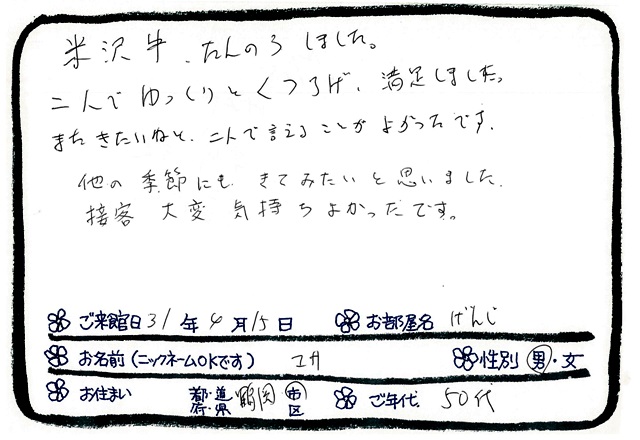 米沢牛、たんのうしました。
二人でゆっくりとくつろげ、満足しました。
またきたいねと、二人で言えることがよかったです。
他の季節にも、きてみたいと思いました。
接客 大変 気持ちよかったです。
ご来館日 31年4月15日 お部屋名 げんじ
お名前(ニックネームOKです) ユカ 性別 男・女
お住まい 都・道・府・県 鶴岡 市区 ご年代 50代